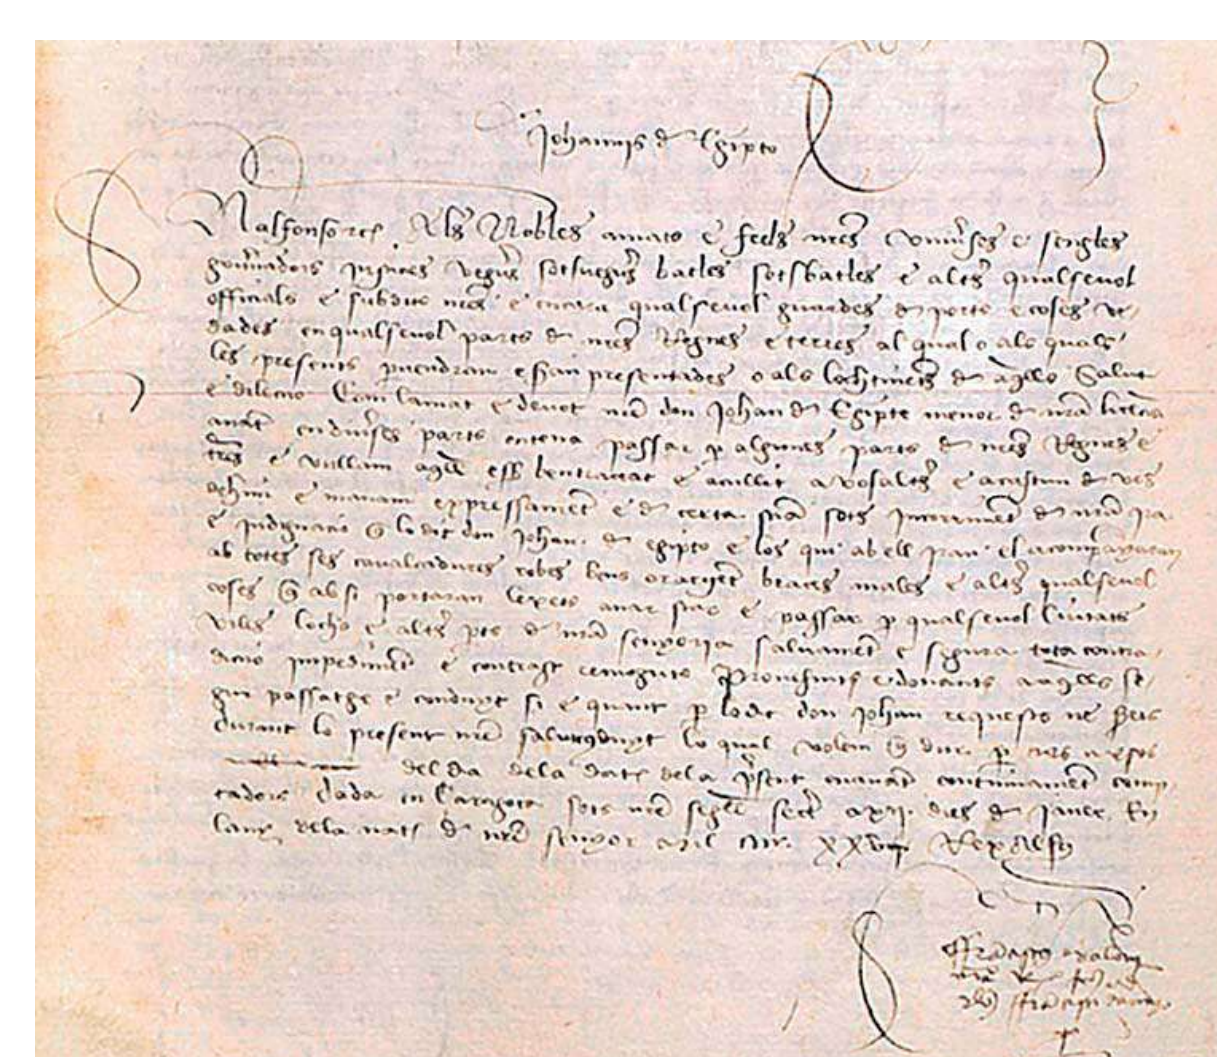 Johannis de Egipto
N alfonso etc Als Nobles amats e feels nres universes e sengles
governadors justicies veguers sotsveguers batles sotsbatles e altres qualsevol
officials e subdits nres e encara qualsevol guardes de ports e coses ve-
dades en qualsevol parts de nres Regnes e terres al qual o als quals
les presents pervendran e sian presentades o als lochtinents de aquells Salut
e dileccio Com lamat e devot nre don Johan de Egipte menor de nra licencia
anant en diverses parts entena passar per algunes parts de nres Regnes e
terres e vullam aquell esser ben tractat e acullit a vosaltres e a cascun de vos
dehim e manam expressament e de certa sciencia sots incorriment de nra ira
e indignacio que lo dit don Johan de Egipto e los qui ab ell iran e l acompanyaran
ab totes ses cavalcadures robes bens or argent bosses males e altres qualsevol
coses que ab si portaran lexets anar star e passar per qualsevol Ciutats
viles lochs e altres parts de nra senyoria salvament e segura tota contra-
diccio impediment e contrast remoguts Provehints e donants a aquells se-
gur passatge e conduyt si e quant per lo dit don Johan requests ne serets
durant lo present nre salvconduyt lo qual volem que dur per tres mesos
del dia dela data dela present enavant continuament comp-
tadors Dada en Caragoça sots nre segell secret a xii dies de Janer En
lany dela nat de nre senyor mil cccc xxv Rex Alfo